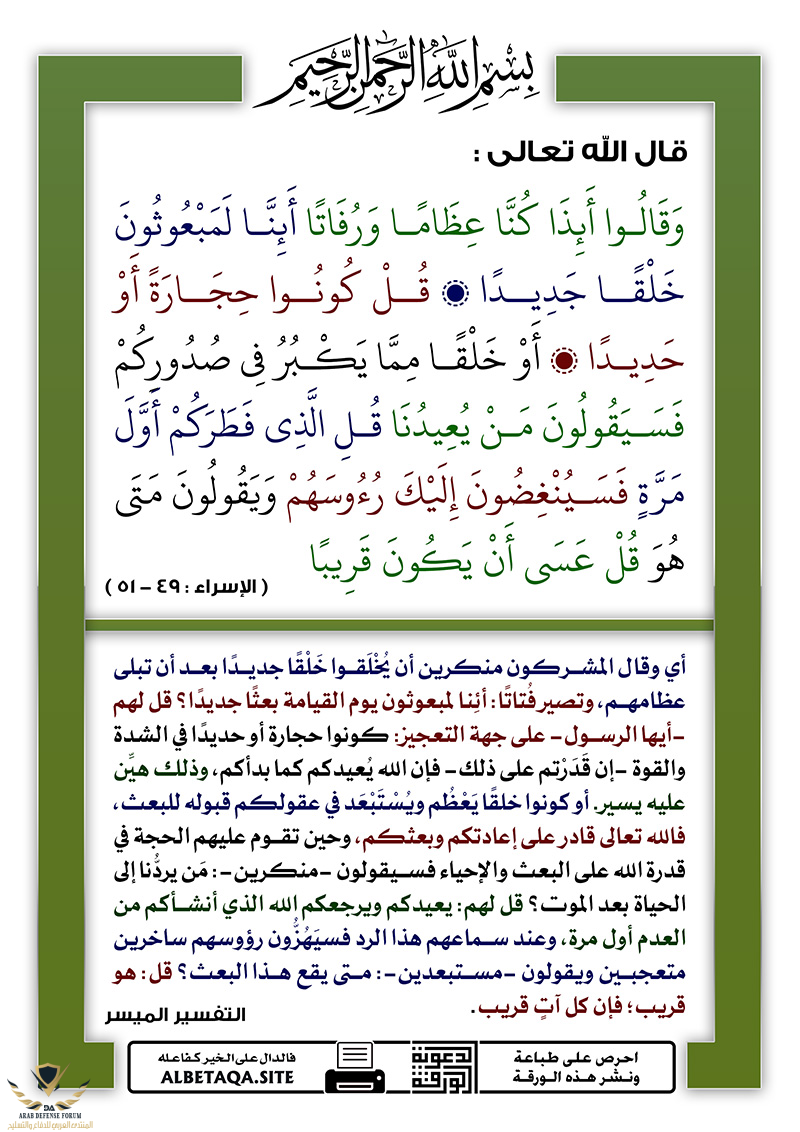 بِسْمِ اللَّهِ الرَّحْمَٰنِ الرَّحِيمِ
قال الله تعالى :
وَقَالُوا أَئِذَا كُنَّا عِظَامًا وَرُفَاتًا أَئِنَّا لَمَبْعُوثُونَ
خَلْقًا جَدِيدًا ۝ قُلْ كُونُوا حِجَارَةً أَوْ
حَدِيدًا ۝ أَوْ خَلْقًا مِمَّا يَكْبُرُ فِي صُدُورِكُمْ
فَسَيَقُولُونَ مَنْ يُعِيدُنَا قُلِ الَّذِي فَطَرَكُمْ أَوَّلَ
مَرَّةٍ فَسَيُنْغِضُونَ إِلَيْكَ رُءُوسَهُمْ وَيَقُولُونَ مَتَى
هُوَ قُلْ عَسَى أَنْ يَكُونَ قَرِيبًا
( الإسراء : ٤٩ - ٥١ )
أي وقال المشركون منكرين أن يُخْلَقوا خَلْقًا جديدًا بعد أن تبلى
عظامهم، وتصير فُتاتًا: أئنا لمبعوثون يوم القيامة بعثًا جديدًا؟ قل لهم
-أيها الرسول- على جهة التعجيز: كونوا حجارة أو حديدًا في الشدة
والقوة -إن قَدَرْتم على ذلك- فإن الله يُعيدكم كما بدأكم، وذلك هيِّن
عليه يسير. أو كونوا خلقًا يَعْظُم ويُسْتَبْعَد في عقولكم قبوله للبعث،
فالله تعالى قادر على إعادتكم وبعثكم، وحين تقوم عليهم الحجة في
قدرة الله على البعث والإحياء فسيقولون -منكرين-: مَن يردُّنا إلى
الحياة بعد الموت؟ قل لهم: يعيدكم ويرجعكم الله الذي أنشأكم من
العدم أول مرة، وعند سماعهم هذا الرد فسيَهُزُّون رؤوسهم ساخرين
متعجبين ويقولون -مستبعدين-: متى يقع هذا البعث؟ قل: هو
قريب؛ فإن كل آتٍ قريب.
التفسير الميسر
احرص على طباعة
ونشر هذه الورقة
الدعوية
الورقة
فالدال على الخير كفاعله
ALBETAQA.SITE
DA
ARAB DEFENSE FORUM
المنتدى العربي للدفاع والتسليح